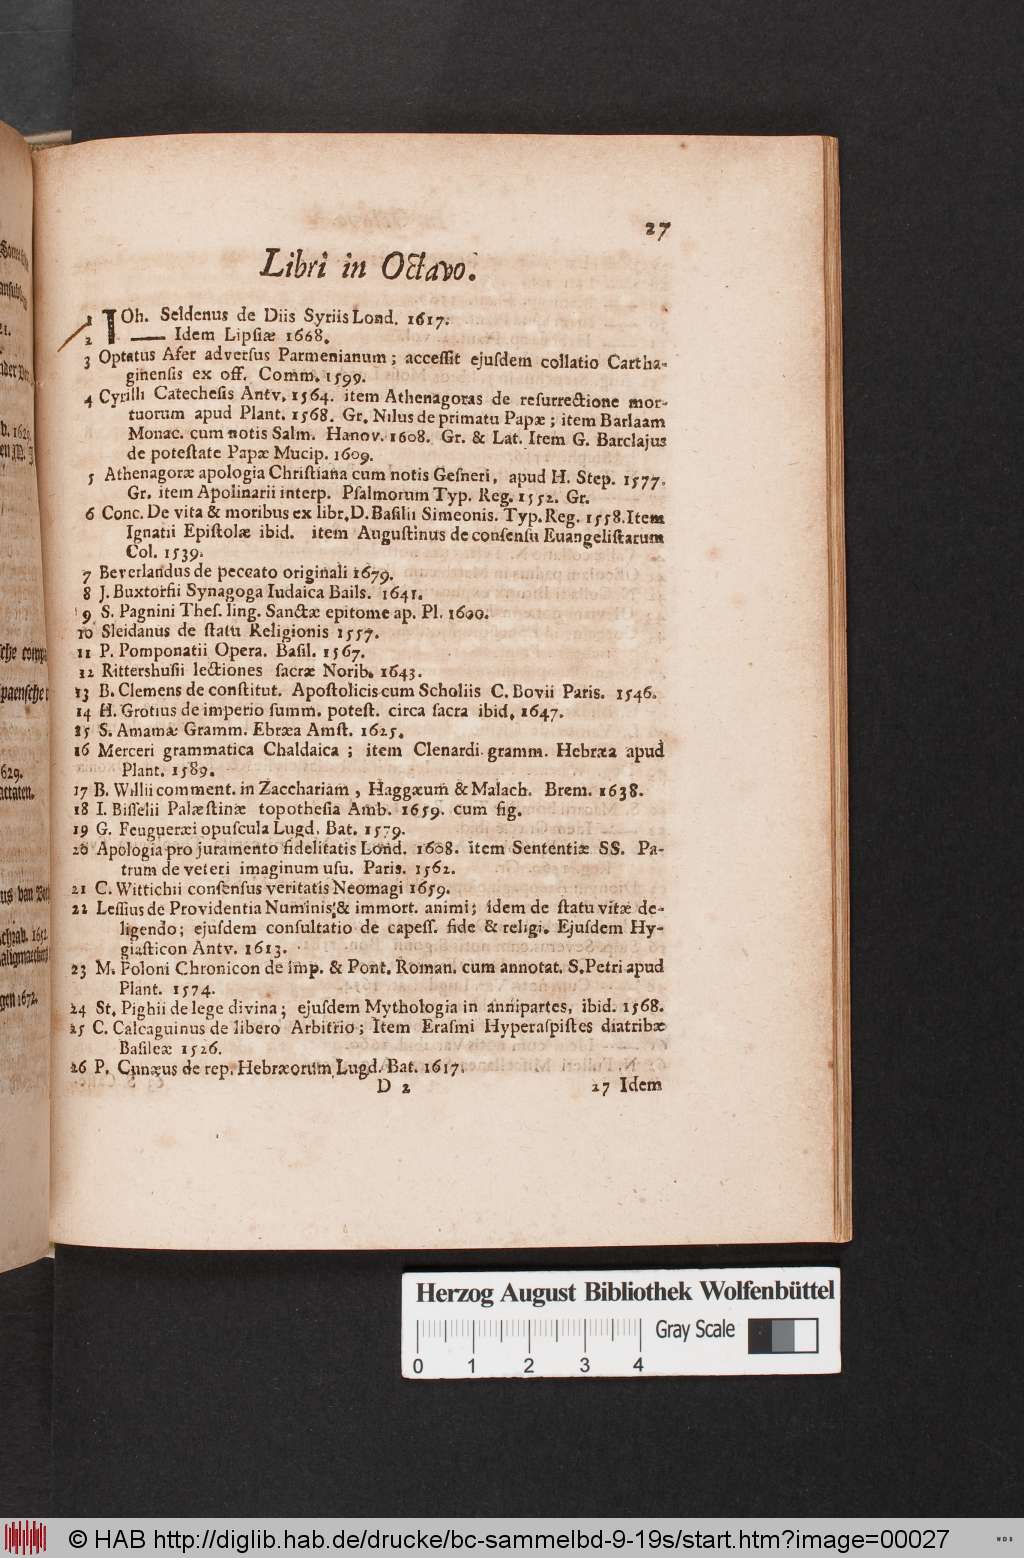 27
Libri in Octavo.
1 IOh. Seldenus de Diis Syriis Lond. 1617.
2 —— Idem Lipsiæ 1668.
3 Optatus Afer adversus Parmenianum; accessit ejusdem collatio Cartha-
ginensis ex off. Comm. 1599.
4 Cyrilli Catechesis Antv. 1564. item Athenagoras de resurrectione mor-
tuorum apud Plant. 1568. Gr. Nilus de primatu Papæ; item Barlaam
Monac. cum notis Salm. Hanov. 1608. Gr. & Lat. Item G. Barclajus
de potestate Papæ Mucip. 1609.
5 Athenagoræ apologia Christiana cum notis Gesneri, apud H. Step. 1577.
Gr. item Apolinarii interp. Psalmorum Typ. Reg. 1552. Gr.
6 Conc. De vita & moribus ex libr. D. Basilii Simeonis. Typ. Reg. 1558. Item
Ignatii Epistolæ ibid. item Augustinus de consensu Euangelistarum
Col. 1539.
7 Beverlandus de peccato originali 1679.
8 J. Buxtorfii Synagoga Iudaica Basil. 1641.
9 S. Pagnini Thes. ling. Sanctæ epitome ap. Pl. 1600.
10 Sleidanus de statu Religionis 1557.
11 P. Pomponatii Opera. Basil. 1567.
12 Rittershusii lectiones sacræ Norib. 1643.
13 B. Clemens de constitut. Apostolicis cum Scholiis C. Bovii Paris. 1546.
14 H. Grotius de imperio summ. potest. circa sacra ibid. 1647.
15 S. Amamæ Gramm. Ebræa Amst. 1625.
16 Merceri grammatica Chaldaica; item Clenardi gramm. Hebræa apud
Plant. 1589.
17 B. Willii comment. in Zacchariam, Haggæum & Malach. Brem. 1638.
18 I. Bisselii Palæstinæ topothesia Amb. 1659. cum fig.
19 G. Feugueræi opuscula Lugd. Bat. 1579.
20 Apologia pro juramento fidelitatis Lond. 1608. item Sententiæ SS. Pa-
trum de veteri imaginum usu. Paris. 1562.
21 C. Wittichii consensus veritatis Neomagi 1659.
22 Lessius de Providentia Numinis & immort. animi; idem de statu vitæ de-
ligendo; ejusdem consultatio de capess. fide & religi. Ejusdem Hy-
giasticon Antv. 1613.
23 M. Poloni Chronicon de imp. & Pont. Roman. cum annotat. S. Petri apud
Plant. 1574.
24 St. Pighii de lege divina; ejusdem Mythologia in anni partes, ibid. 1568.
25 C. Calcaguinus de libero Arbitrio; Item Erasmi Hyperaspistes diatribæ
Basileæ 1526.
26 P. Cunæus de rep. Hebræorum Lugd. Bat. 1617.
D 2 27 Idem
Herzog August Bibliothek Wolfenbüttel
Gray Scale
0 1 2 3 4
© HAB http://diglib.hab.de/drucke/bc-sammelbd-9-19s/start.htm?image=00027